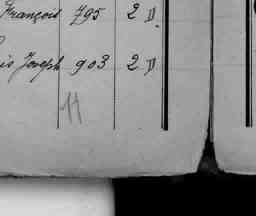 François 795 2 D.
Joseph 903 2 D
11